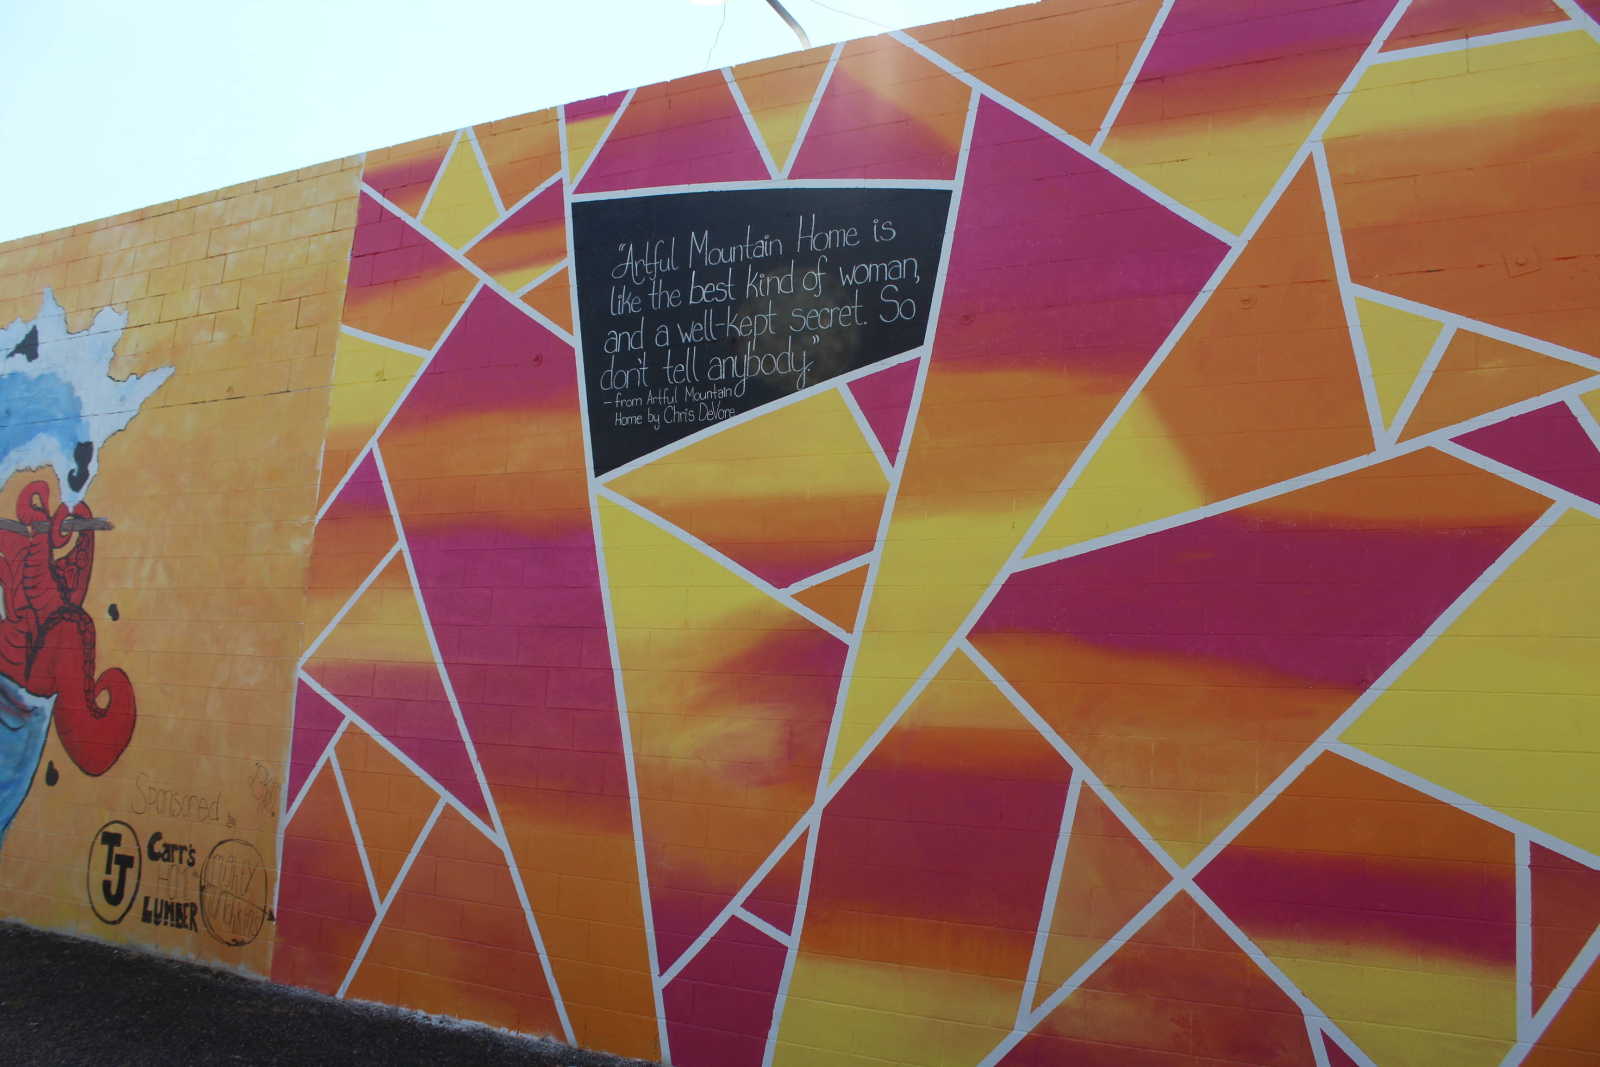 "Artful Mountain Home is
like the best kind of woman,
and a well-kept secret. So
don't tell anybody."
- from Artful Mountain
Home by Chris DeVore
Sponsored
TJ
Carr's
LUMBER